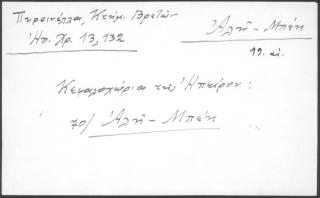 Πυρσινέλλα, Κτημ. Βρετῶν
Ἀλῆ-Μπέη
Ἠπ. Χρ. 13, 132
19. αἰ.
Κεφαλοχώρια τῆς Ἠπείρου:
70/ Ἀλῆ-Μπέη